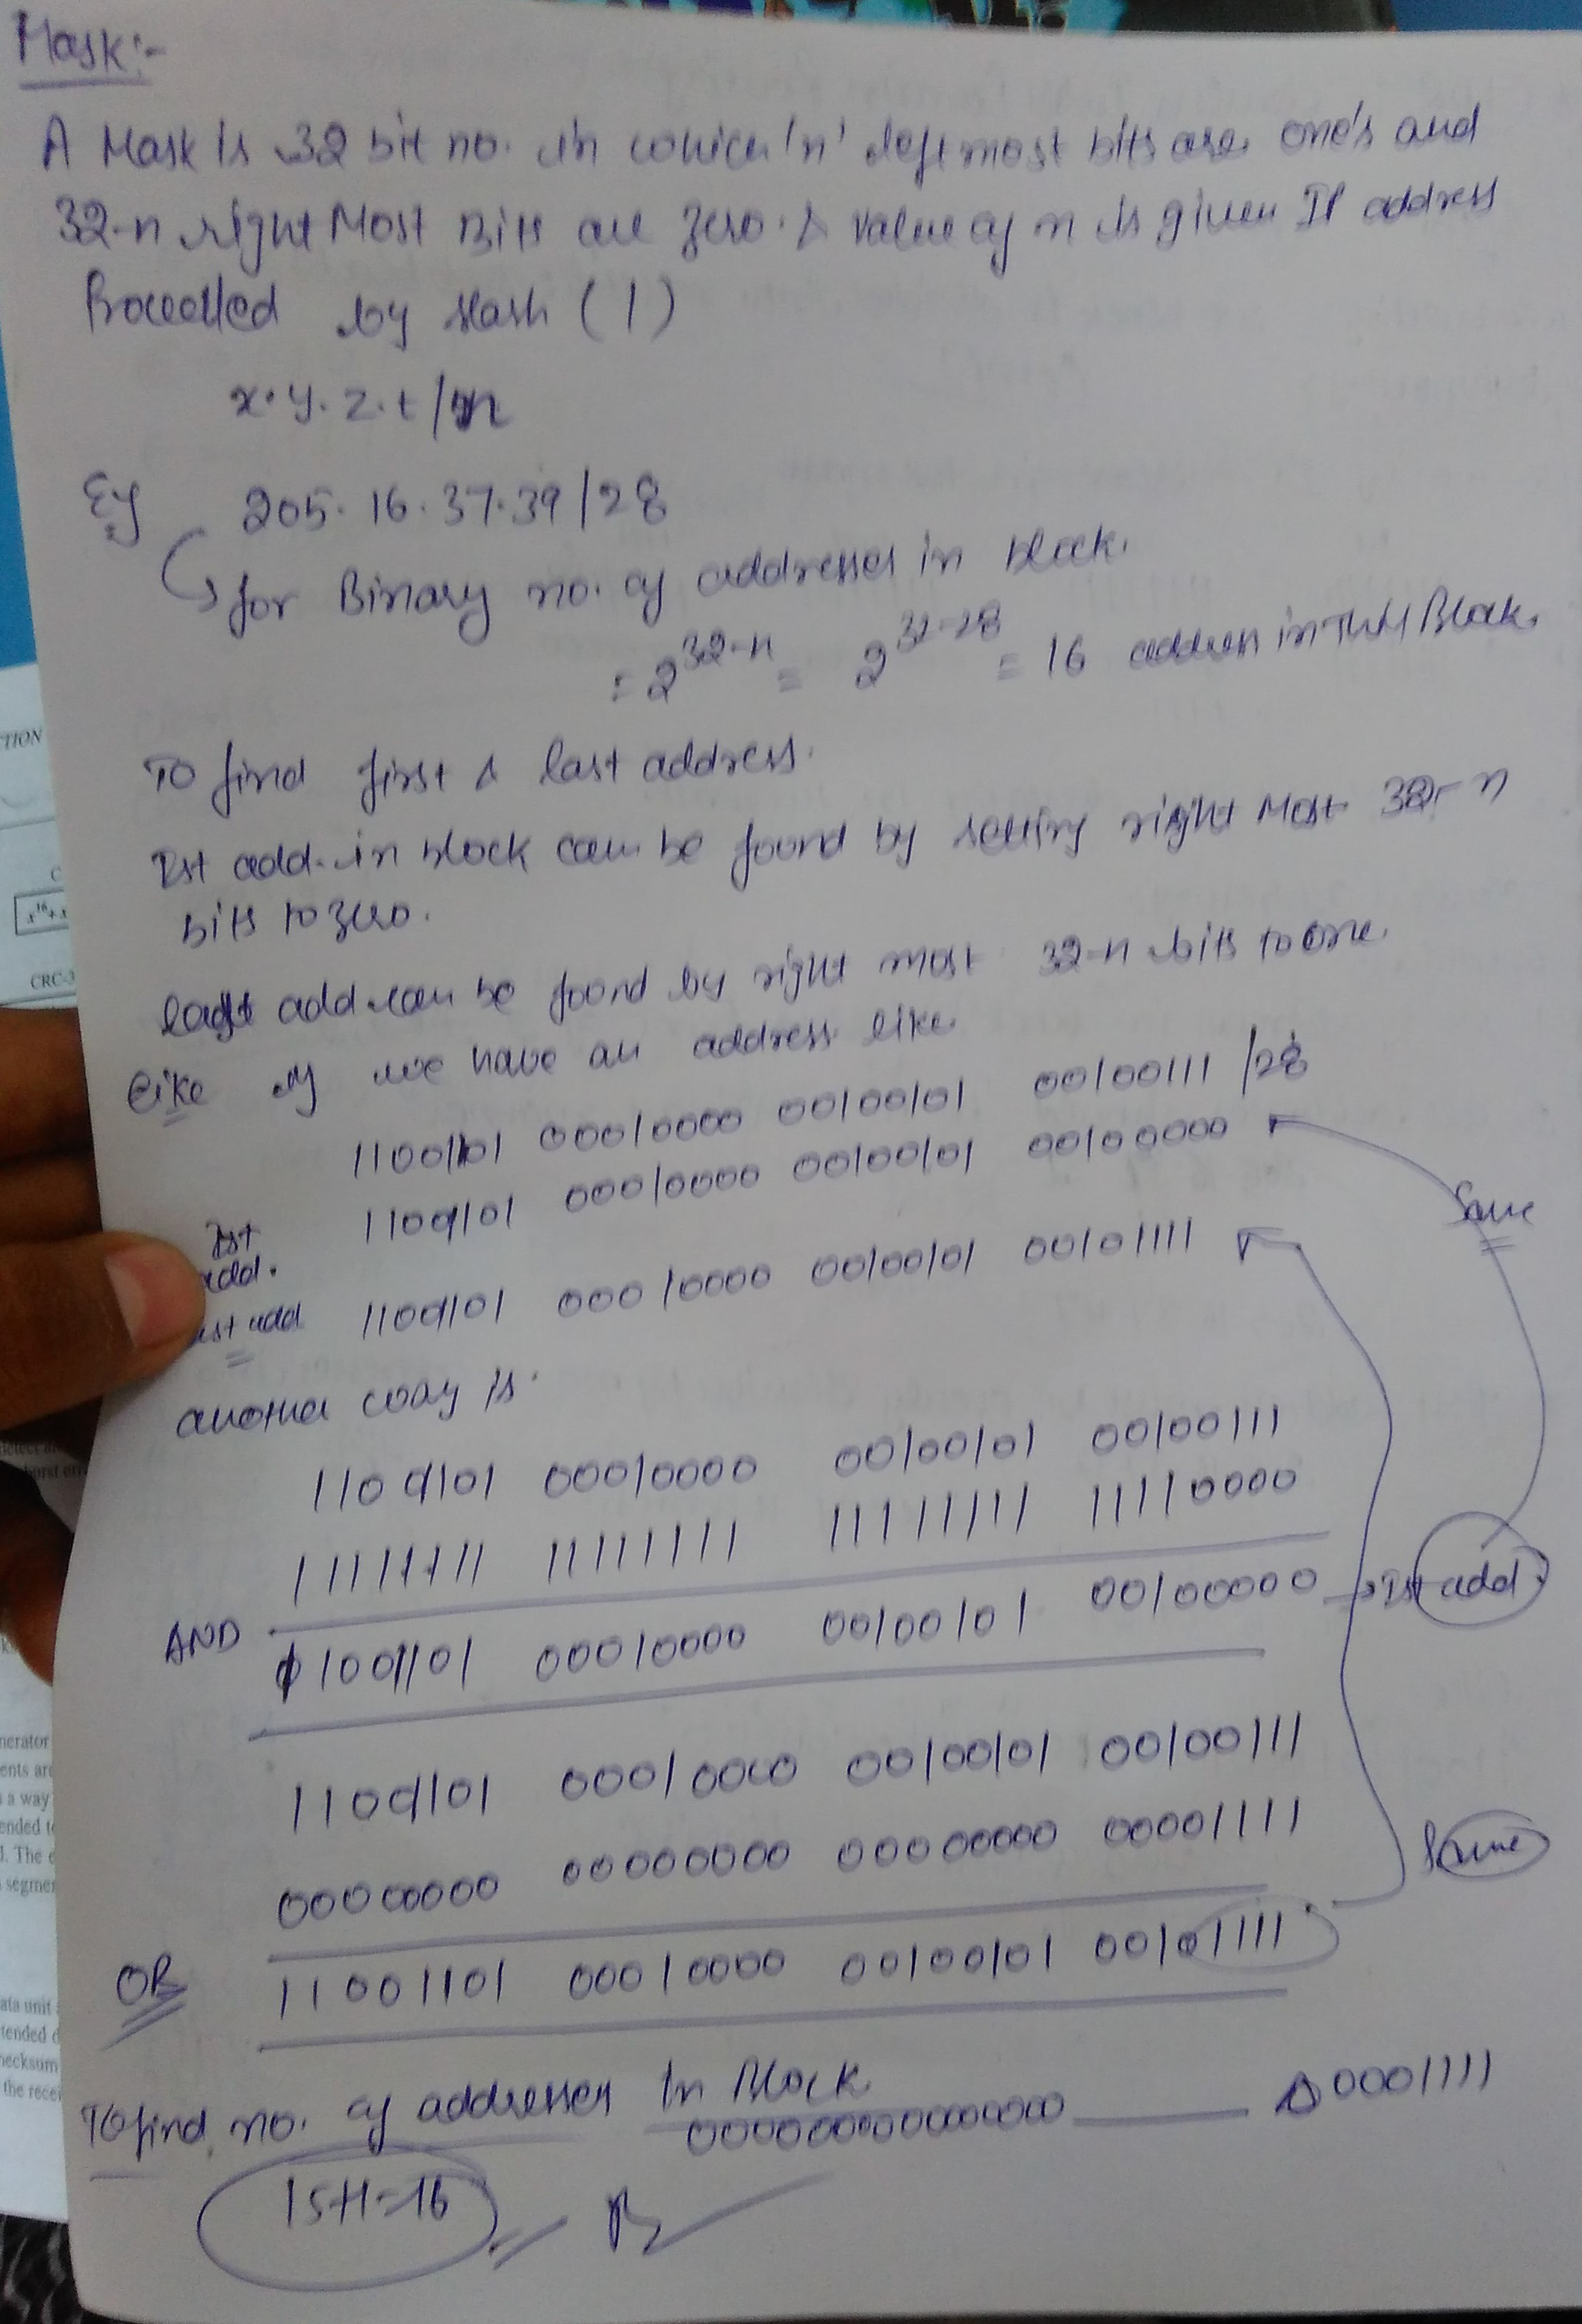 Mask:-
A Mask is 32 bit no. in which 'n' leftmost bits are one's and
32-n right Most Bits are zero. & value of n is given IP address
by slash (/)
x.y.z.t/n
Eg 205.16.37.39/28
for Binary no. of addresses in block.
= 2^32-n = 2^32-28 = 16 address in This Block.
To find first & last address.
Ist add. in block can be found by setting right Most 32-n
bits to zero.
last add can be found by right most 32-n bits to one.
Like if we have an address like
11001101 00010000 00100101 00100111 /28
Ist add. 11001101 00010000 00100101 00100000
Same
ast add 11001101 00010000 00100101 00101111
another way is.
11001101 00010000 00100101 00100111
11111111 11111111 11111111 11110000
AND 11001101 00010000 00100101 00100000 → Ist add
11001101 00010000 00100101 00100111
00000000 00000000 00000000 00001111
Same
OR 11001101 00010000 00100101 00101111
To find no. of addresses In Block
0001111
15+1=16
TION
C
x16+x
CRC-3
nerator
ents are
a way
ended t
. The
segme
ata unit
tended d
hecksum
the recei